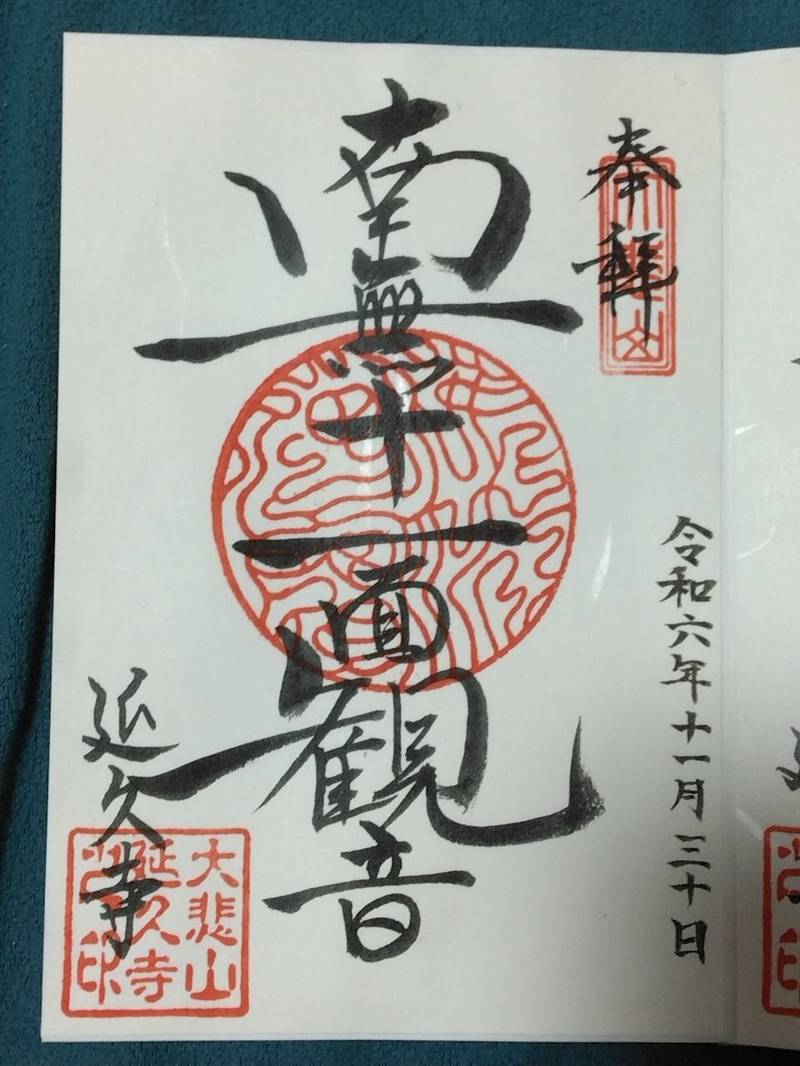 奉拝
令和六年十一月三十日
南無十一面観音
延久寺
大悲山
延久寺
印